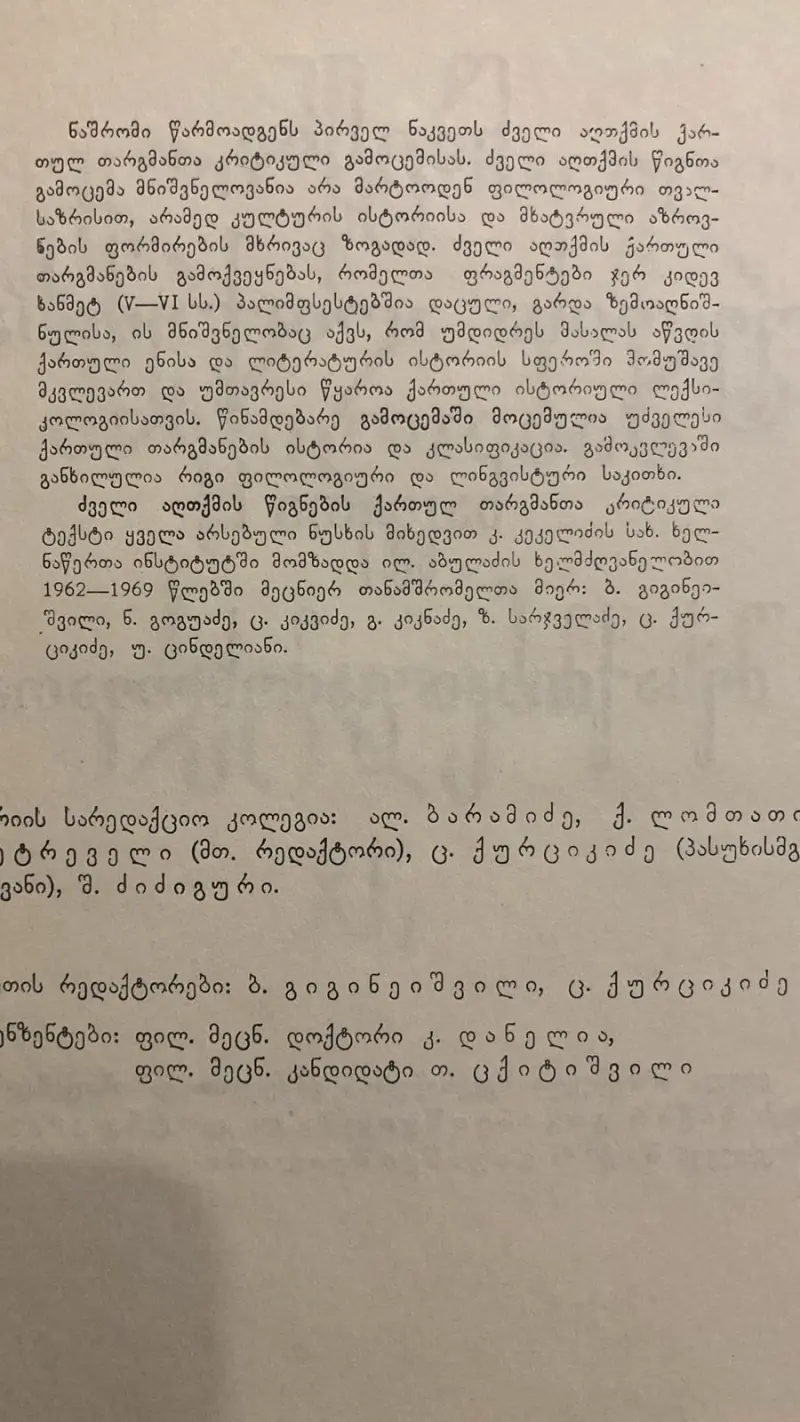 ნაშრომი წარმოადგენს პირველ ნაკვეთს ძველი აღთქმის ქარ-
თულ თარგმანთა კრიტიკული გამოცემისას. ძველი აღთქმის წიგნთა
გამოცემა მნიშვნელოვანია არა მარტოოდენ ფილოლოგიური თვალ-
საზრისით, არამედ კულტურის ისტორიისა და მხატვრული აზროვ-
ნების ფორმირების მხრივაც ზოგადად. ძველი აღთქმის ქართული
თარგმანების გამოქვეყნებას, რომელთა ფრაგმენტები ჯერ კიდევ
ხანმეტ (V—VI სს.) პალიმფსესტებშია დაცული, გარდა ზემოაღნიშ-
ნულისა, ის მნიშვნელობაც აქვს, რომ უმდიდრეს მასალას აწვდის
ქართული ენისა და ლიტერატურის ისტორიის სფეროში მომუშავე
მკვლევართ და უმთავრესი წყაროა ქართული ისტორიული ლექსი-
კოლოგიისათვის. წინამდებარე გამოცემაში მოცემულია უძველესი
ქართული თარგმანების ისტორია და კლასიფიკაცია. გამოკვლევაში
განხილულია რიგი ფილოლოგიური და ლინგვისტური საკითხი.
ძველი აღთქმის წიგნების ქართულ თარგმანთა კრიტიკული
ტექსტი ყველა არსებული ნუსხის მიხედვით კ. კეკელიძის სახ. ხელ-
ნაწერთა ინსტიტუტში მომზადდა ილ. აბულაძის ხელმძღვანელობით
1962—1969 წლებში მეცნიერ თანამშრომელთა მიერ: ბ. გიგინეი-
შვილი, ნ. გოგუაძე, ც. კიკვიძე, გ. კიკნაძე, ზ. სარჯველაძე, ც. ქურ-
ციკიძე, უ. ცინდელიანი.
რიის სარედაქციო კოლეგია: ალ. ბარამიძე, ქ. ლომთათი
ეტრეველი (მთ. რედაქტორი), ც. ქურციკიძე (პასუხისმგ
ვანი), შ. ძიძიგური.
თის რედაქტორები: ბ. გიგინეიშვილი, ც. ქურციკიძე
ენზენტები: ფილ. მეცნ. დოქტორი კ. დანელია,
ფილ. მეცნ. კანდიდატი თ. ცქიტიშვილი